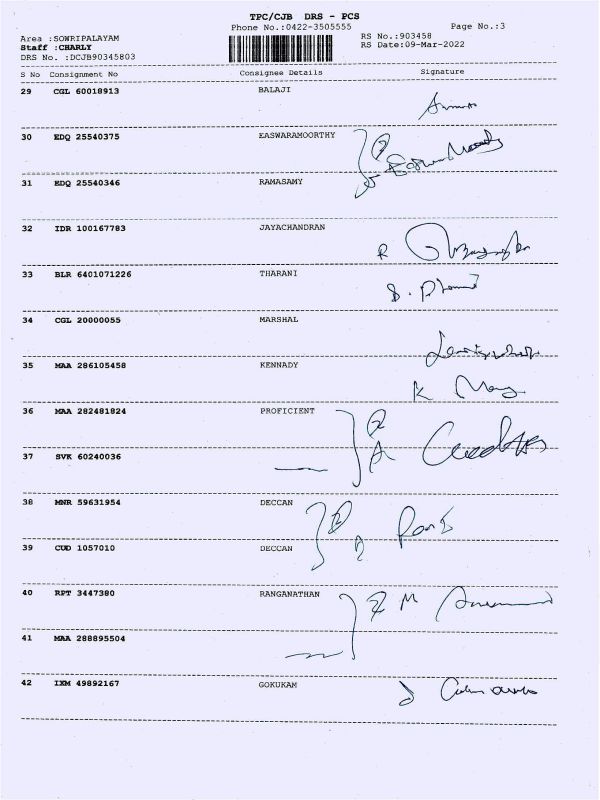 TPC/CJB DRS - PCS
Phone No.:0422-3505555
Page No.:3
Area :SOWRIPALAYAM
RS No.:903458
Staff :CHARLY
RS Date:09-Mar-2022
DRS No. :DCJB90345803
S No Consignment No Consignee Details Signature
29 CGL 60018913 BALAJI
30 EDQ 25540375 EASWARAMOORTHY
31 EDQ 25540346 RAMASAMY
32 IDR 100167783 JAYACHANDRAN
33 BLR 6401071226 THARANI
34 CGL 20000055 MARSHAL
35 MAA 286105458 KENNADY
36 MAA 282481824 PROFICIENT
37 SVK 60240036
38 MNR 59631954 DECCAN
39 CUD 1057010 DECCAN
40 RPT 3447380 RANGANATHAN
41 MAA 288895504
42 IXM 49892167 GOKUKAM